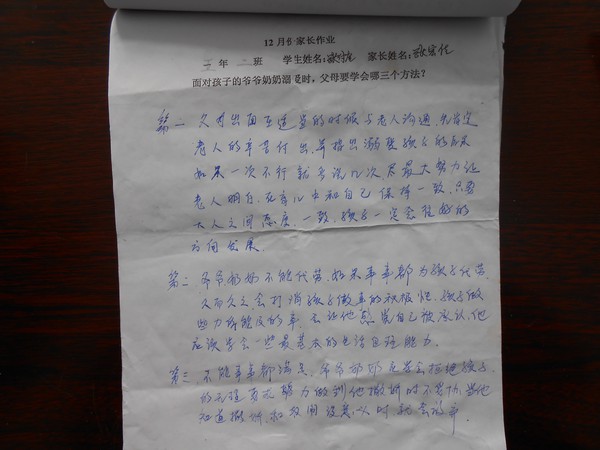 12月份家长作业
三年 二 班 学生姓名: 家长姓名:
面对孩子的爷爷奶奶溺爱时,父母要学会哪三个方法?
第一 父母出面在适当的时候与老人沟通,先肯定
老人的辛苦付出,并指出溺爱孩子的后果
如果一次不行就多说几次尽最大努力让
老人明白,在育儿上和自己保持一致,只要
大人之间态度一致,孩子一定会往好的
方向发展.
第二 爷爷奶奶不能代劳.如果事事都为孩子代劳
久而久之会打消孩子做事的积极性.孩子做
些力所能及的事,会让他感觉自己被承认.他
应该学会一些最基本的生活自理能力.
第三,不能事事都满足.爷爷奶奶也学会拒绝孩子
的无理要求 努力做到他撒娇时不妥协,当他
知道撒娇和救闹没效果时就会放弃.